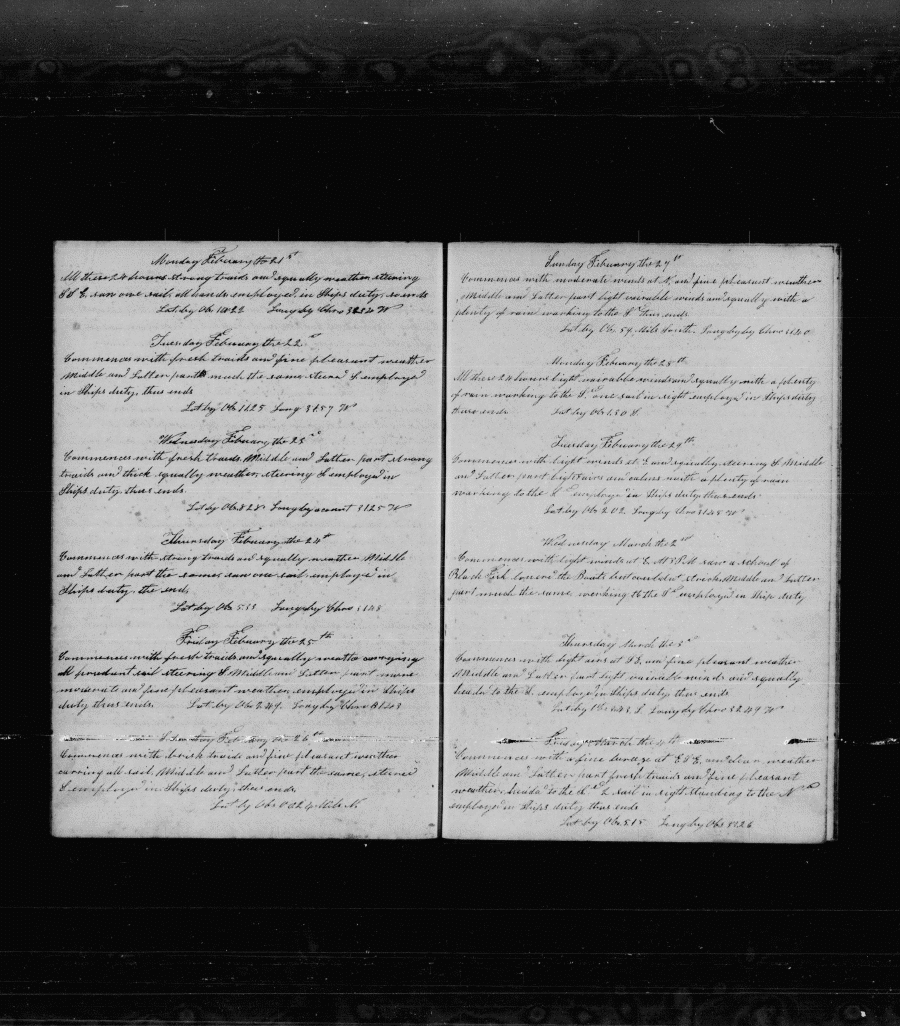 Monday Febuary the 21st
All these 24 hours strong traids and squally weather steering
S S E. saw one sail all hands employed in Ships duty so ends
Lat by Ob 1022 Long by Chro W
Tuesday Febuary the 22nd
Commences with fresh traids and fine pleasant weather
Middle and Latter part much the same steerd S employed
in Ships duty, thus ends
Lat by Ob 1125 Long 3157 W
Wednesday Febuary the 23rd
Commences with fresh traids Middle and Latter part strong
traids and thick squally weather, steering S employd in
Ships duty, thus ends.
Lat by Ob 828 Long by acount 3125 W
Thursday Febuary the 24th
Commences with strong traids and squally weather Middle
and Latter part the same, saw one sail employed in
Ships duty, the ends
Lat by Ob 533 Long by Chro 3148
Friday Febuary the 25th
Commences with fresh traids and squally weather carrying
all prudant sail steering S Middle and Latter part more
moderate and fine pleasant weather, employed in Ships
duty thus ends. Lat by Ob 249. Long by Chro 3143
Febuary the 26th
Commences with brisk traids and fine pleasant weather
carrying all sail. Middle and Latter part the same, steerd
S employed in Ships duty, thus ends.
Lat by Ob 0 02 Mile N
Sunday Febuary the 27th
Commences with moderate winds at N, and fine pleasant weather
Middle and Latter part light vairable winds and squally with a
plenty of rain working to the Sd thus ends.
Lat by Ob. 54 Mile South. Long by Chro 3140
Monday Febuary the 28th
All these 24 hours light vairable winds and squally with a plenty
of rain working to the Sd one sail in sight employd in Ships duty
thus ends. Lat by Ob 1.50 S.
Tuesday Febuary the 29th
Commences with light winds at E and squally, steering S Middle
and Latter part light airs and calms with a plenty of rain
working to the Sd employd in Ships duty thus ends
Lat by Ob 202. Long by Chro 3145 W
Wednesday March the 2nd
Commences with light winds at E. At P.M saw a school of
Black Fish lowerd the Boats but could not strike Middle and Latter
part much the same, working to the Sd employd in Ship duty
Thursday March the 3d
Commences with light airs at S E, and fine pleasant weather
Middle and Latter part light vairable winds and squally
heads to the S. employd in Ships duty thus ends
Lat by Ob 343. S. Long by Chro 3249 W
Friday March the 4th
Commences with a fine breeze at E S E, and clear weather
Middle and Latter part fresh traids and fine pleasant
weather, heads to the Sd a sail in sight standing to the Nd
employd in Ships duty thus ends
Lat by Ob 5.15 Long by Ob 3326